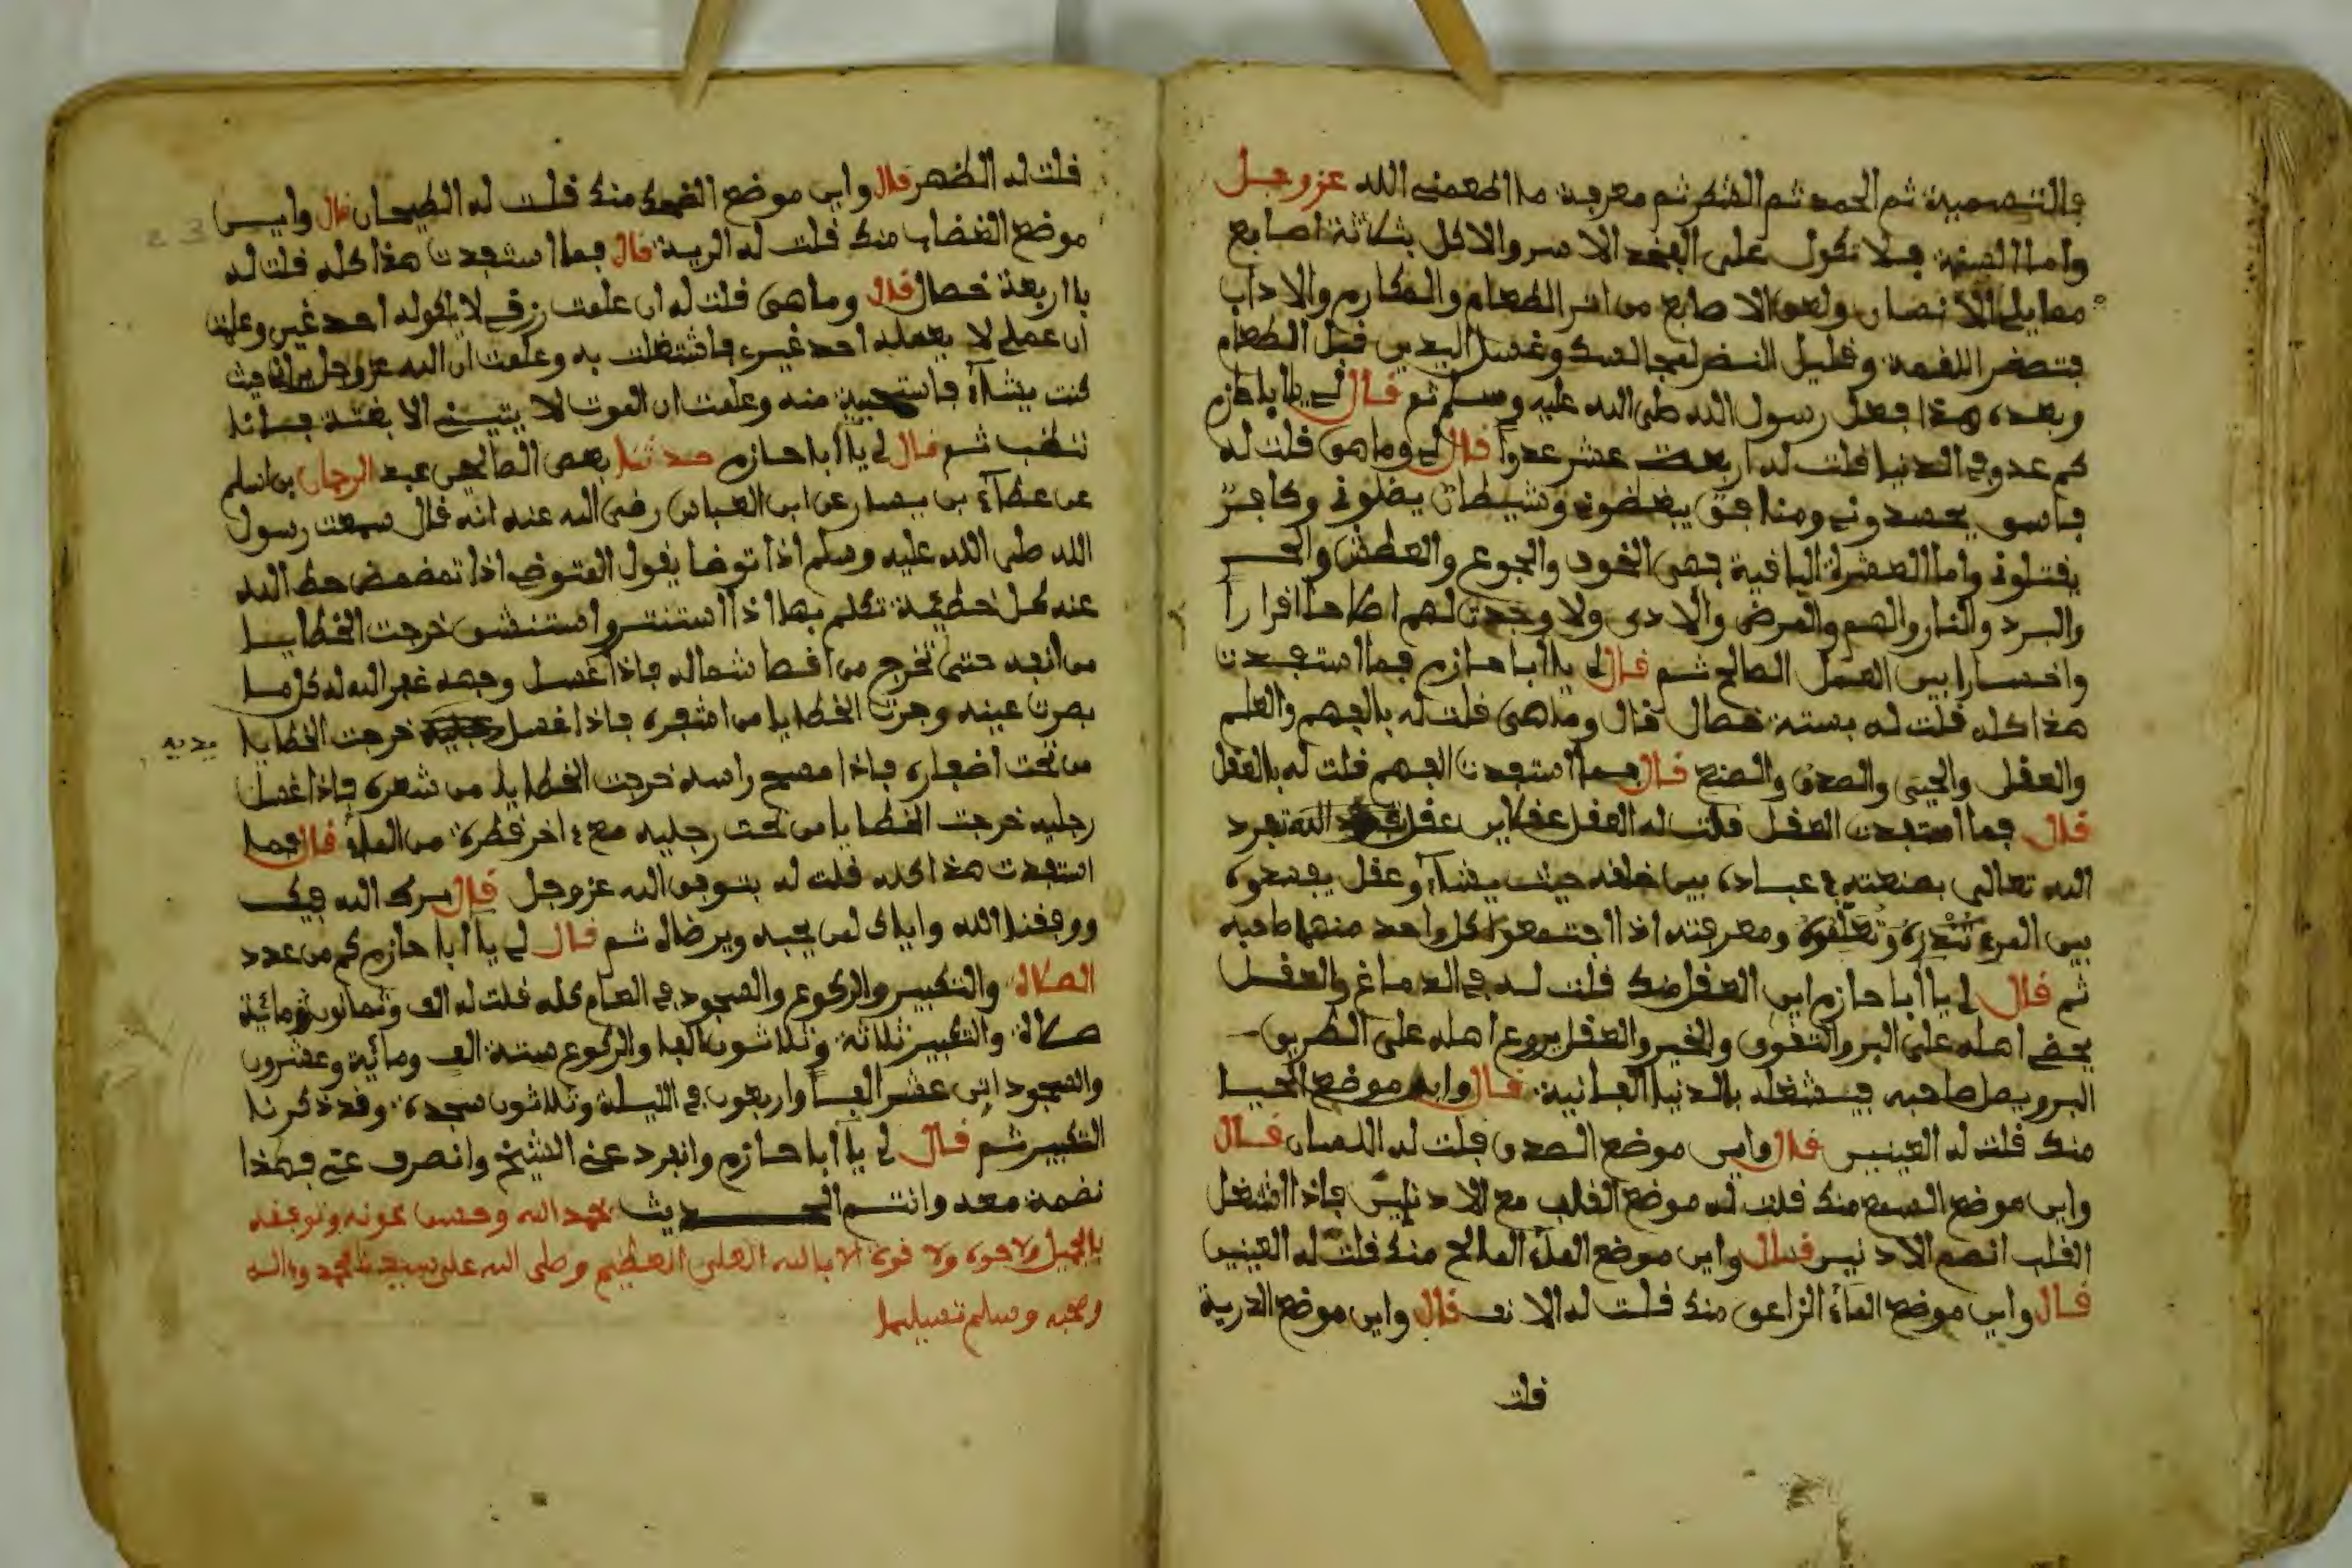 فالتسمية ثم الحمد ثم الشكر ثم معرفة ما اطعمني الله عز وجل
واما السنة فلا تكول على الفخد الاسر والاكل بثلاثة اصابع
مما يلي الانسان ولعق الاصابع من اثر الطعام والمكارم والاداب
فتصغر اللقمة وقليل النضر لعجا لسك وغسل اليدين قبل الطعام
وبعده هذا فعل رسول الله صلى الله عليه وسلم ثم قال لي يا ابا حازم
كم عدو في الدنيا قلت له اربعت عشر عدوا قال لي وما هي قلت له
فاسو يحسدوني ومنافق يبغضوني وشيطان يضلوني وكافر
يقتلوني واما العشرة الباقية فهي الخود والجوع والعطش والحر
والبرد والنار والهم والمرض والادى ولا وجدت لهم اطاحا اقرارا
واخسارا بين العمل الصالح ثم قال لي يا ابا حازم فما استفدت
هذا كله قلت له بستة خصال قال وما هي قلت له بالفهم والعلم
والعقل والحيى والصدق والصنع قال فما استفدت الفهم قلت له بالعقل
قال فما استفدت العقل قلت له العقل عقلاين عقل الله تفرد
الله تعالى بصنعته في عباده بين خلقه حيث يشاء وعقل يفسدوه
بين المرء ومعرفته اذا اجتمعوا كل واحد منهما صاحبه
ثم قال لي يا ابا حازم اين العقل منك قلت له في الدماغ والعقل
يحض اهله على البر والتقوى والخير والعقل يروع اهله على الطريق
البر ويصل صاحبه فيشتغله بالدنيا الفانية قال واين موضع الحيا
منك قلت له العينين قال واين موضع الصدق قلت له اللسان قال
واين موضع السمع منك قلت له موضع القلب مع الادنين فاذا اشتغل
القلب انصم الادنين قال واين موضع الماء المالح منك قلت له العينين
قال واين موضع الماء الزاعق منك قلت له الانف قال واين موضع الدرية
قلت
قلت له الظهر قال واين موضع الضحك منك قلت له الطيحان قال واين
موضع الغضب منك قلت له الرية قال فما استفدت هذا كله قلت له
با اربعة خصال قال وما هي قلت له ان علمت رزقي لا ياكوله احد غيري وعلمت
ان عملي لا يعمله احد غيري فاشتغلت به وعلمت ان الله عز وجل يراني حيث
كنت يشاء فاستحيية منه وعلمت ان الموت لا يتيني الا بغتة فانا
ثم قال لي يا ابا حازم حدثنا بعض الصالحين عبد الرحمان بن اسلم
عن عطاء بن يسار عن ابن العباس رضي الله عنه انه قال سمعت رسول
الله صلى الله عليه وسلم اذا توضا يقول المتوضي اذا تمضمض حط الله
عنه كل خطيئة تكلم بها اذا استنثر واستنشق خرجت الخطايا
من انفه حتى تخرج من اقصا شماله فاذا غسل وجهه غفر الله له كل ما
بصرت عينه وجرت الخطايا من اشفره فاذا غسل خرجت الخطايا
يديه
من تحت اضفاره فاذا مسح راسه خرجت الخطايا من شعره فاذا غسل
رجليه خرجت الخطايا من تحت رجليه مع اخر قطرة من الماء قال فما
استفدت هذا كله قلت له بتوفق الله عز وجل قال برك الله فيك
ووفقنا الله واياك لمن يحبه ويرضاه ثم قال لي يا ابا حازم كم من عدد
الصلاة والتكبير والركوع والسجود في العام كله قلت له الف وثمانون مائية
صلاة والتكبير ثلاثة وثلاثون الفا والركوع ستة الف ومائية وعشرون
والسجود اثن عشر الفا واربعون في الليلة وثلاثون سجدة وقد ذكرنا
التكبير ثم قال لي يا ابا حازم وانفرد عني الشيخ وانصرف عني فهذا
نضمة معه وانتم الحديث بحمد الله وحسن عونه وتوفقه
بالجميل ولا حوة ولا قوة الا بالله العلي العظيم وصلى الله على سيدنا محمد واله
وصحبه وسلم تسليما